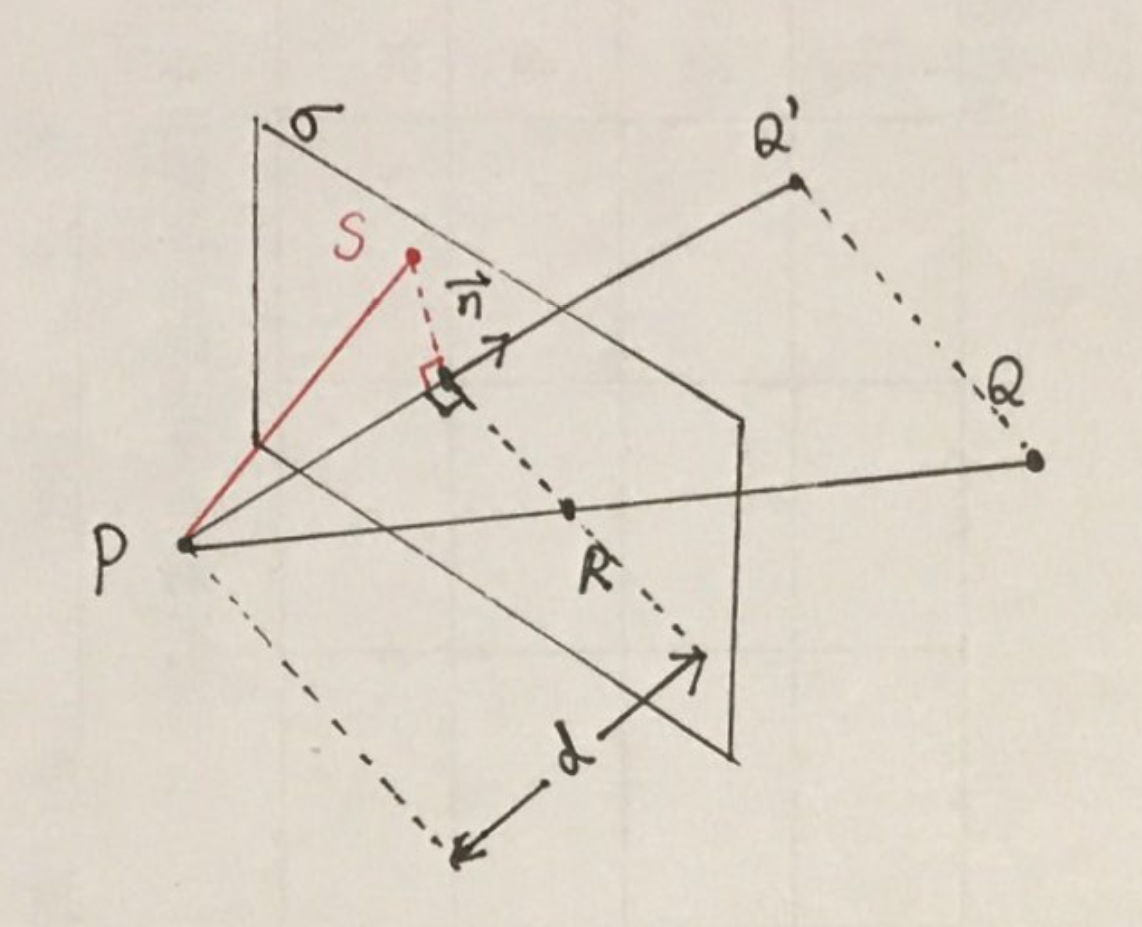 σ
Q'
S
n⃗
Q
P
R
d